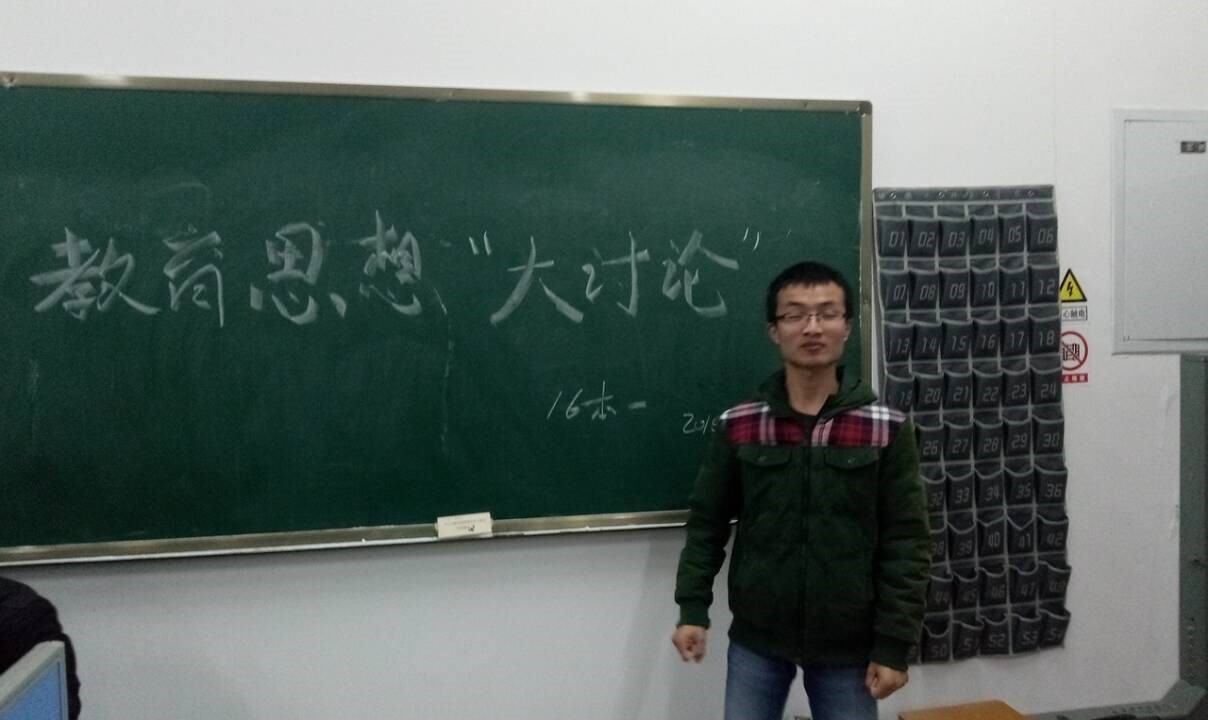 教育思想“大讨论”
16本一
201
01 02 03 04 05 06
07 08 09 10 11 12
13 14 15 16 17 18
19 20 21 22 23 24
26 27 28 29 30
32 33 34 35 36
38 39 40 41 42
44 45 46 47 48
50 51 52 53 54
心触电